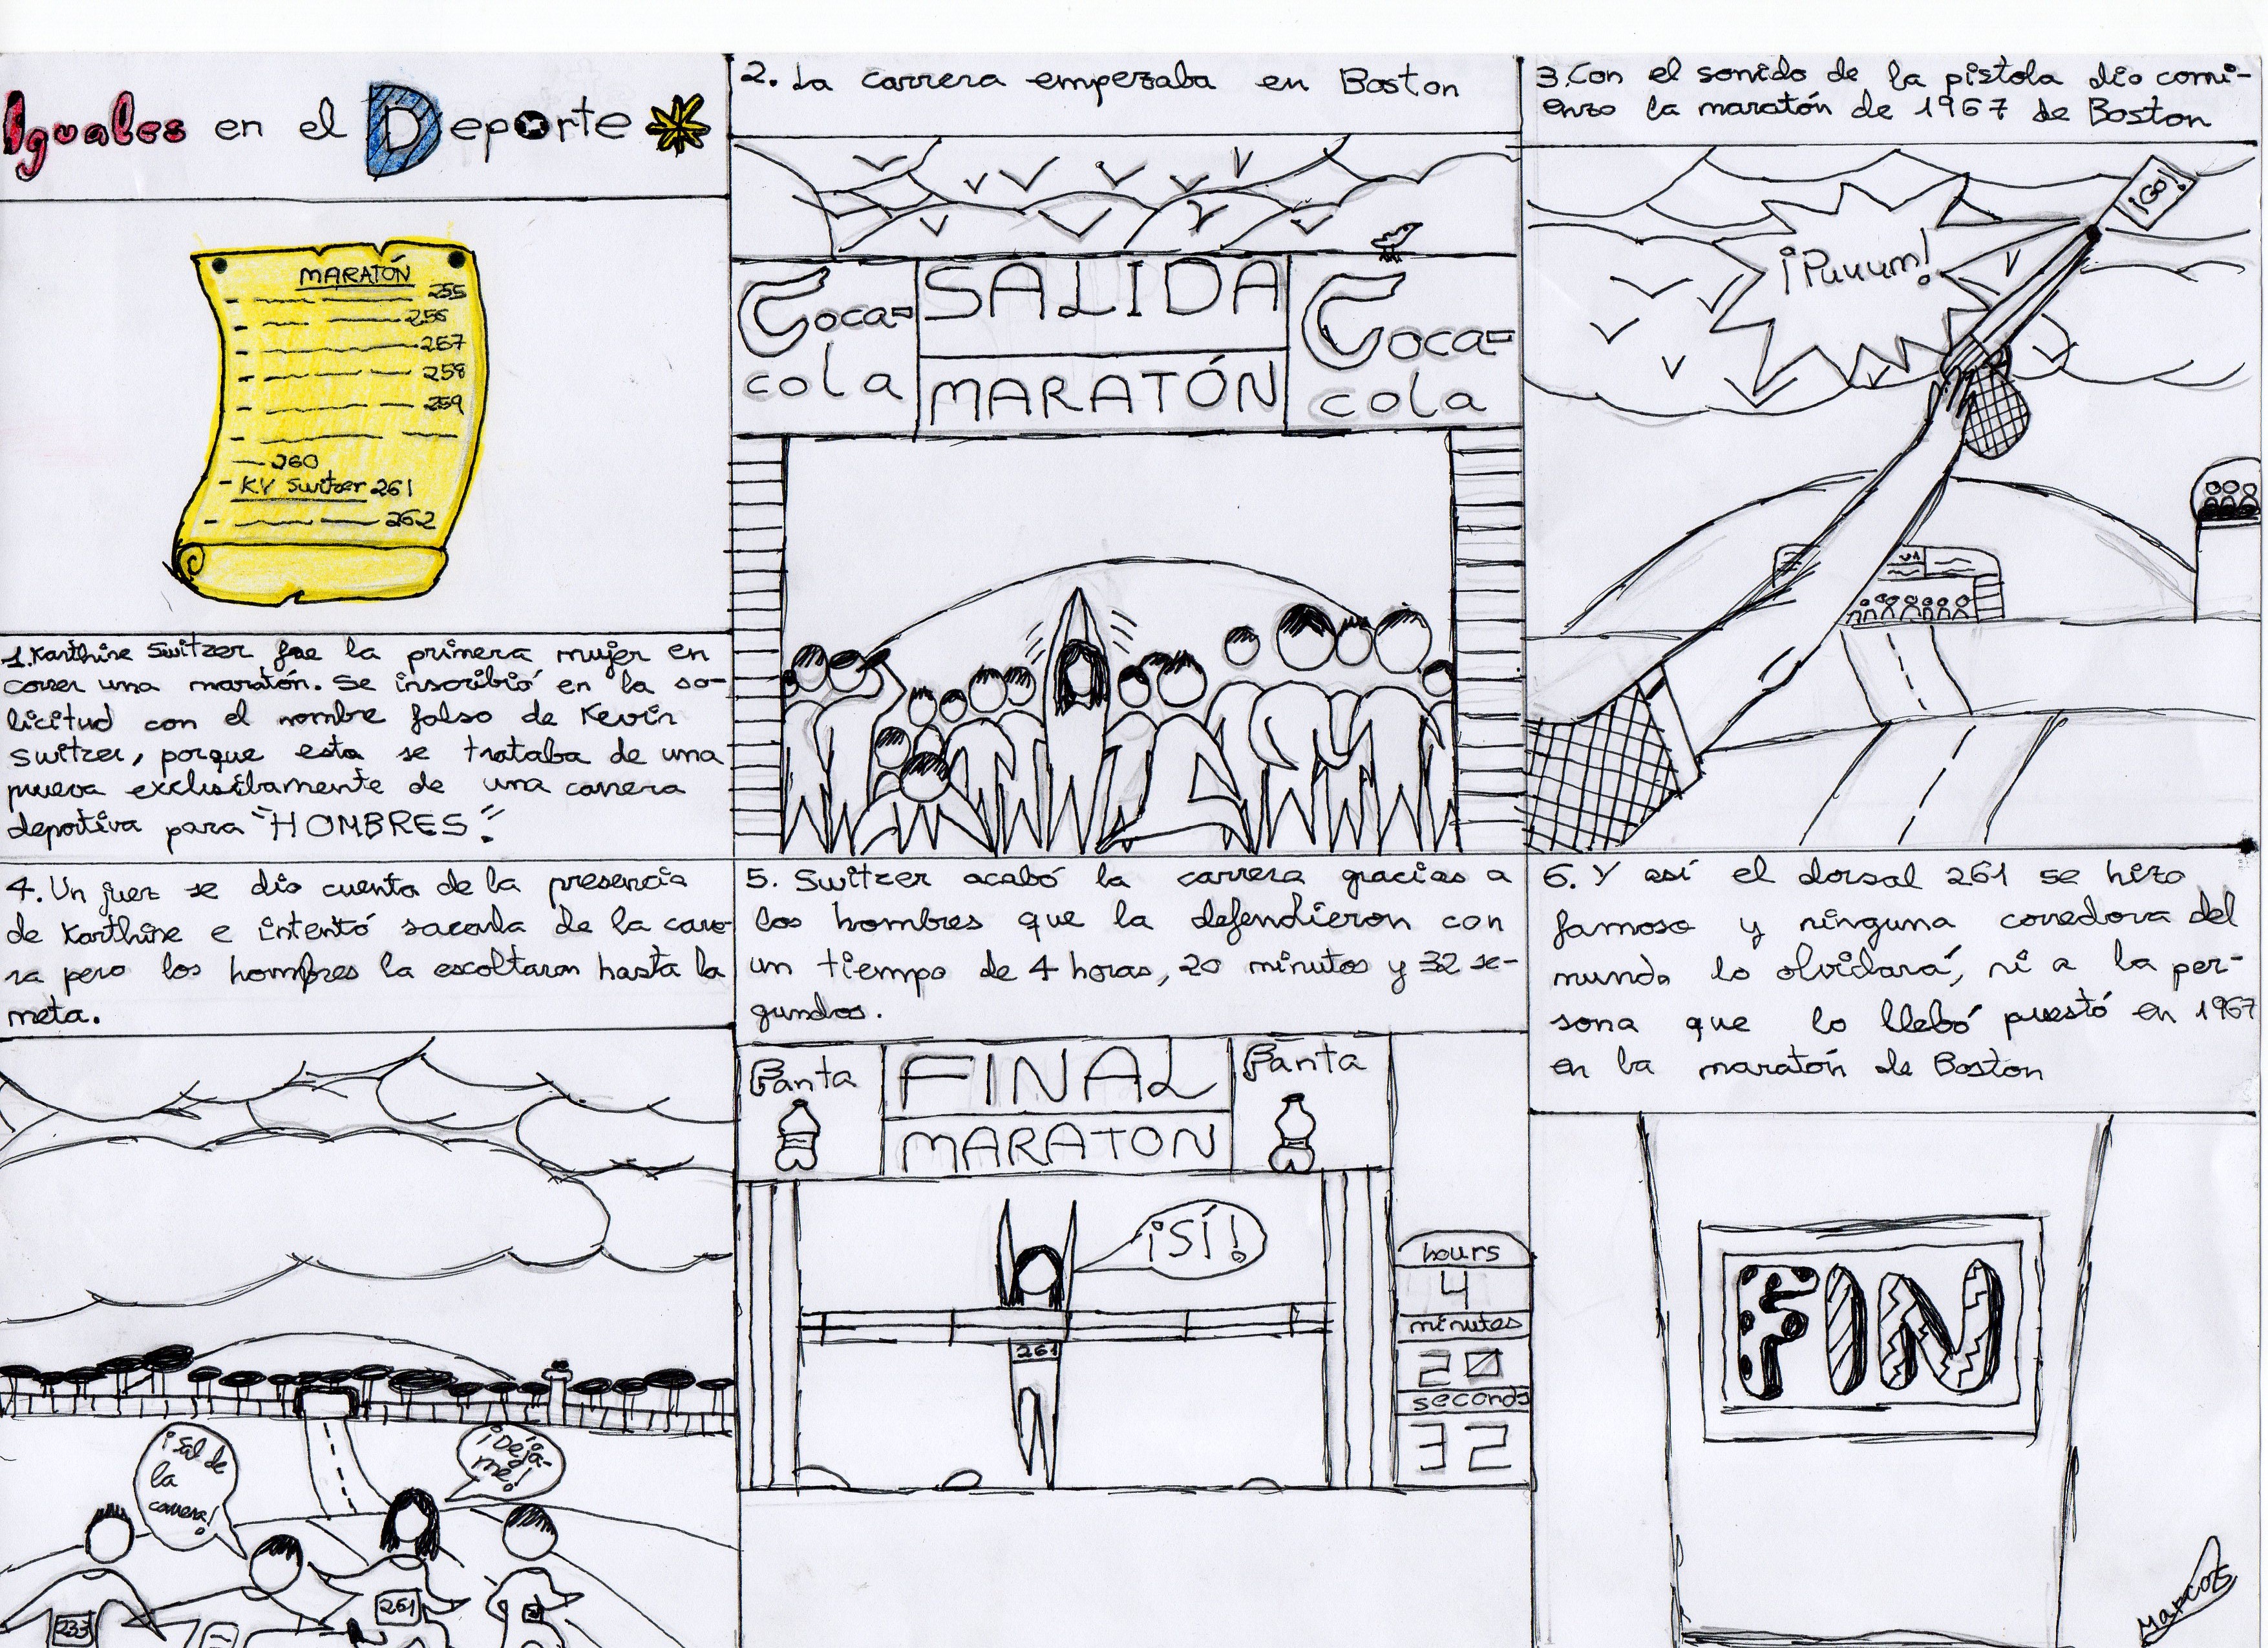 Iguales en el Deporte
MARATÓN
255
256
257
258
259
260
K.V Switzer 261
262
1. Karthine Switzer fue la primera mujer en
correr una maratón. Se inscribió en la so-
licitud con el nombre falso de Kevin
Switzer, porque esta se trataba de una
prueva exclusibamente de una carrera
deportiva para "HOMBRES".
2. La carrera empezaba en Boston
Coca-
cola
SALIDA
MARATÓN
Coca-
cola
3. Con el sonido de la pistola dio comi-
enzo la maratón de 1967 de Boston
¡GO!
¡Puuum!
4. Un juez se dio cuenta de la presencia
de Karthine e intentó sacarla de la carre-
ra pero los hombres la escoltaron hasta la
meta.
¡Sal de
la
carrera!
¡Déja-
me!
233
261
5. Switzer acabó la carrera gracias a
los hombres que la defendieron con
un tiempo de 4 horas, 20 minutos y 32 se-
gundos.
Fanta
FINAL
MARATON
Fanta
¡SÍ!
261
hours
4
minutes
20
seconds
32
6. Y así el dorsal 261 se hizo
famoso y ninguna corredora del
mundo lo olvidará, ni a la per-
sona que lo llebó puestó en 1967
en la maratón de Boston
FIN
Marcos